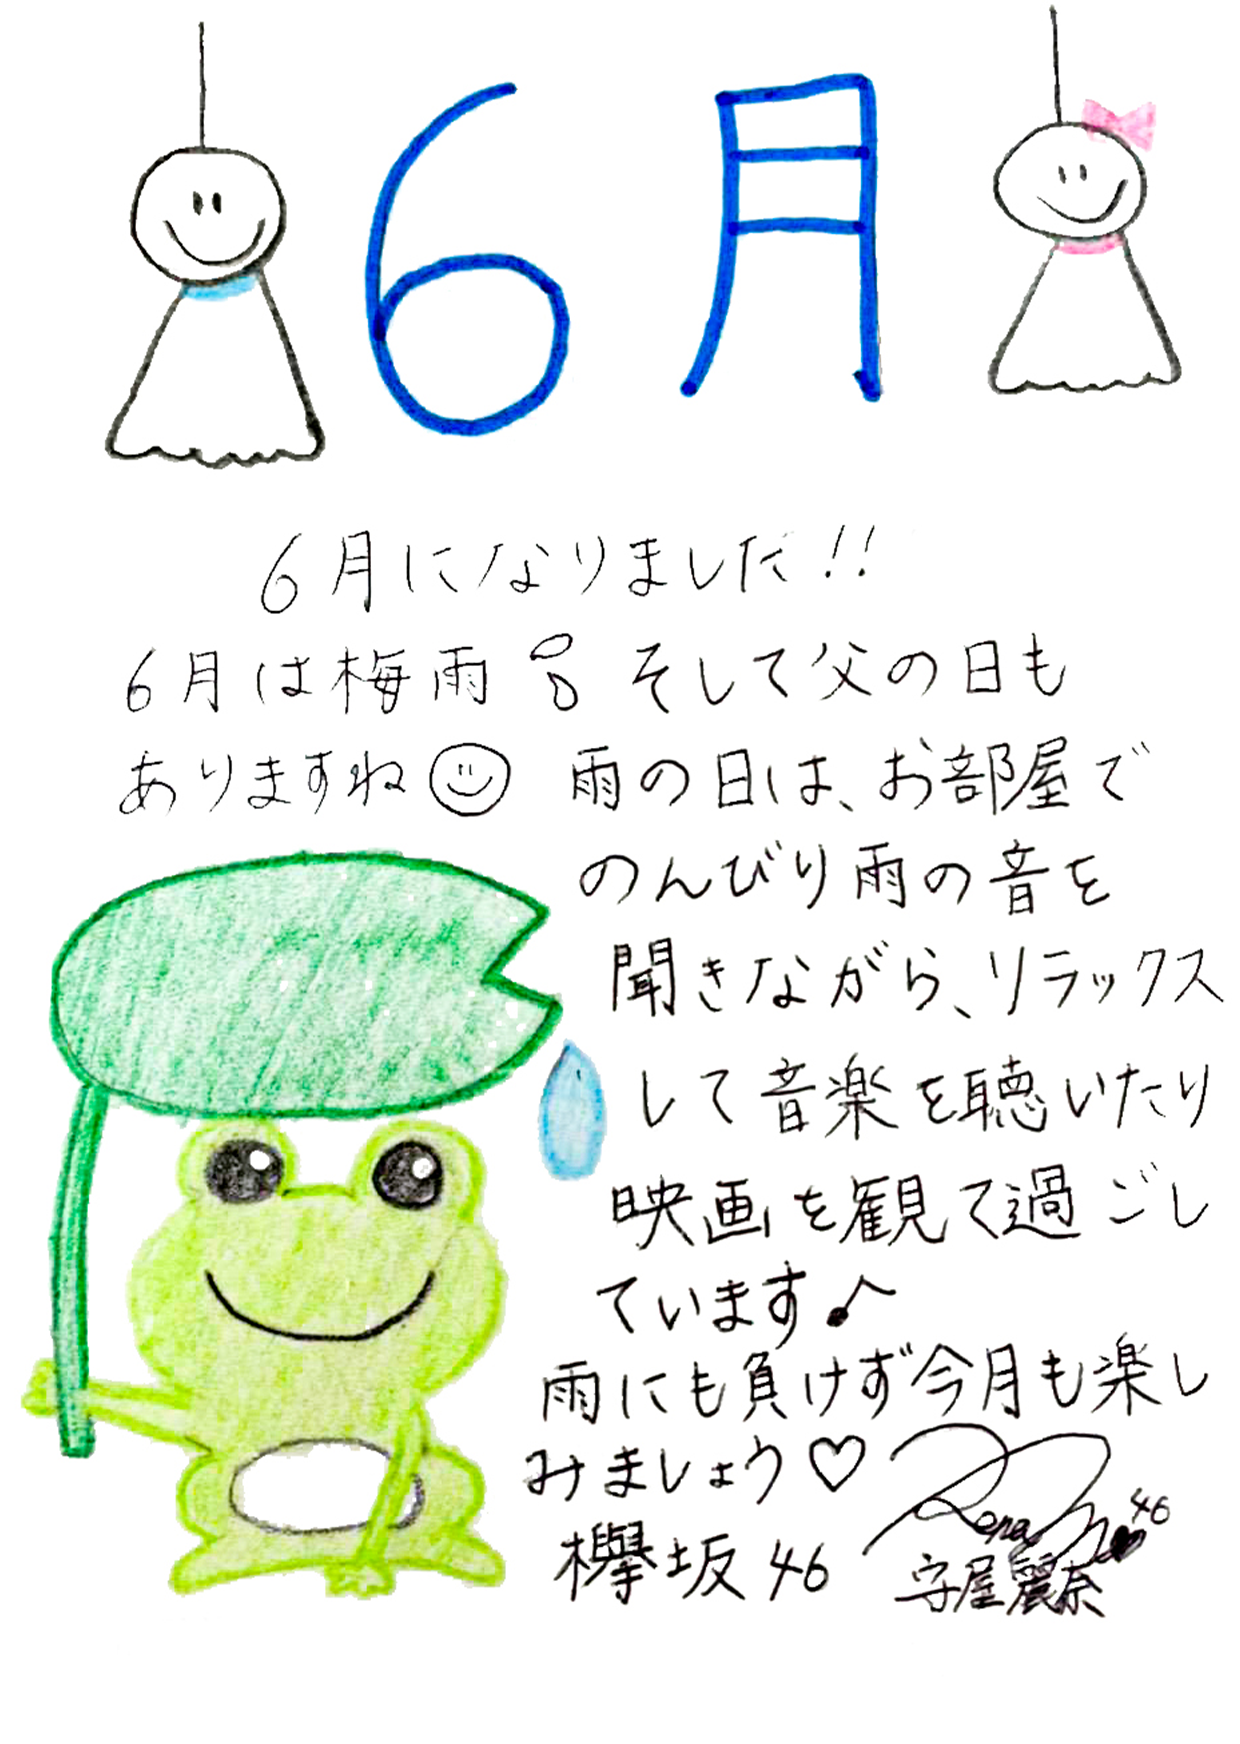 6月
6月になりました!!
6月は梅雨 そして父の日も
ありますね 雨の日は、お部屋で
のんびり雨の音を
聞きながら、リラックス
して音楽を聴いたり
映画を観て過ごし
ています♪
雨にも負けず今月も楽し
みましょう♡
Rena 46
欅坂46 守屋麗奈